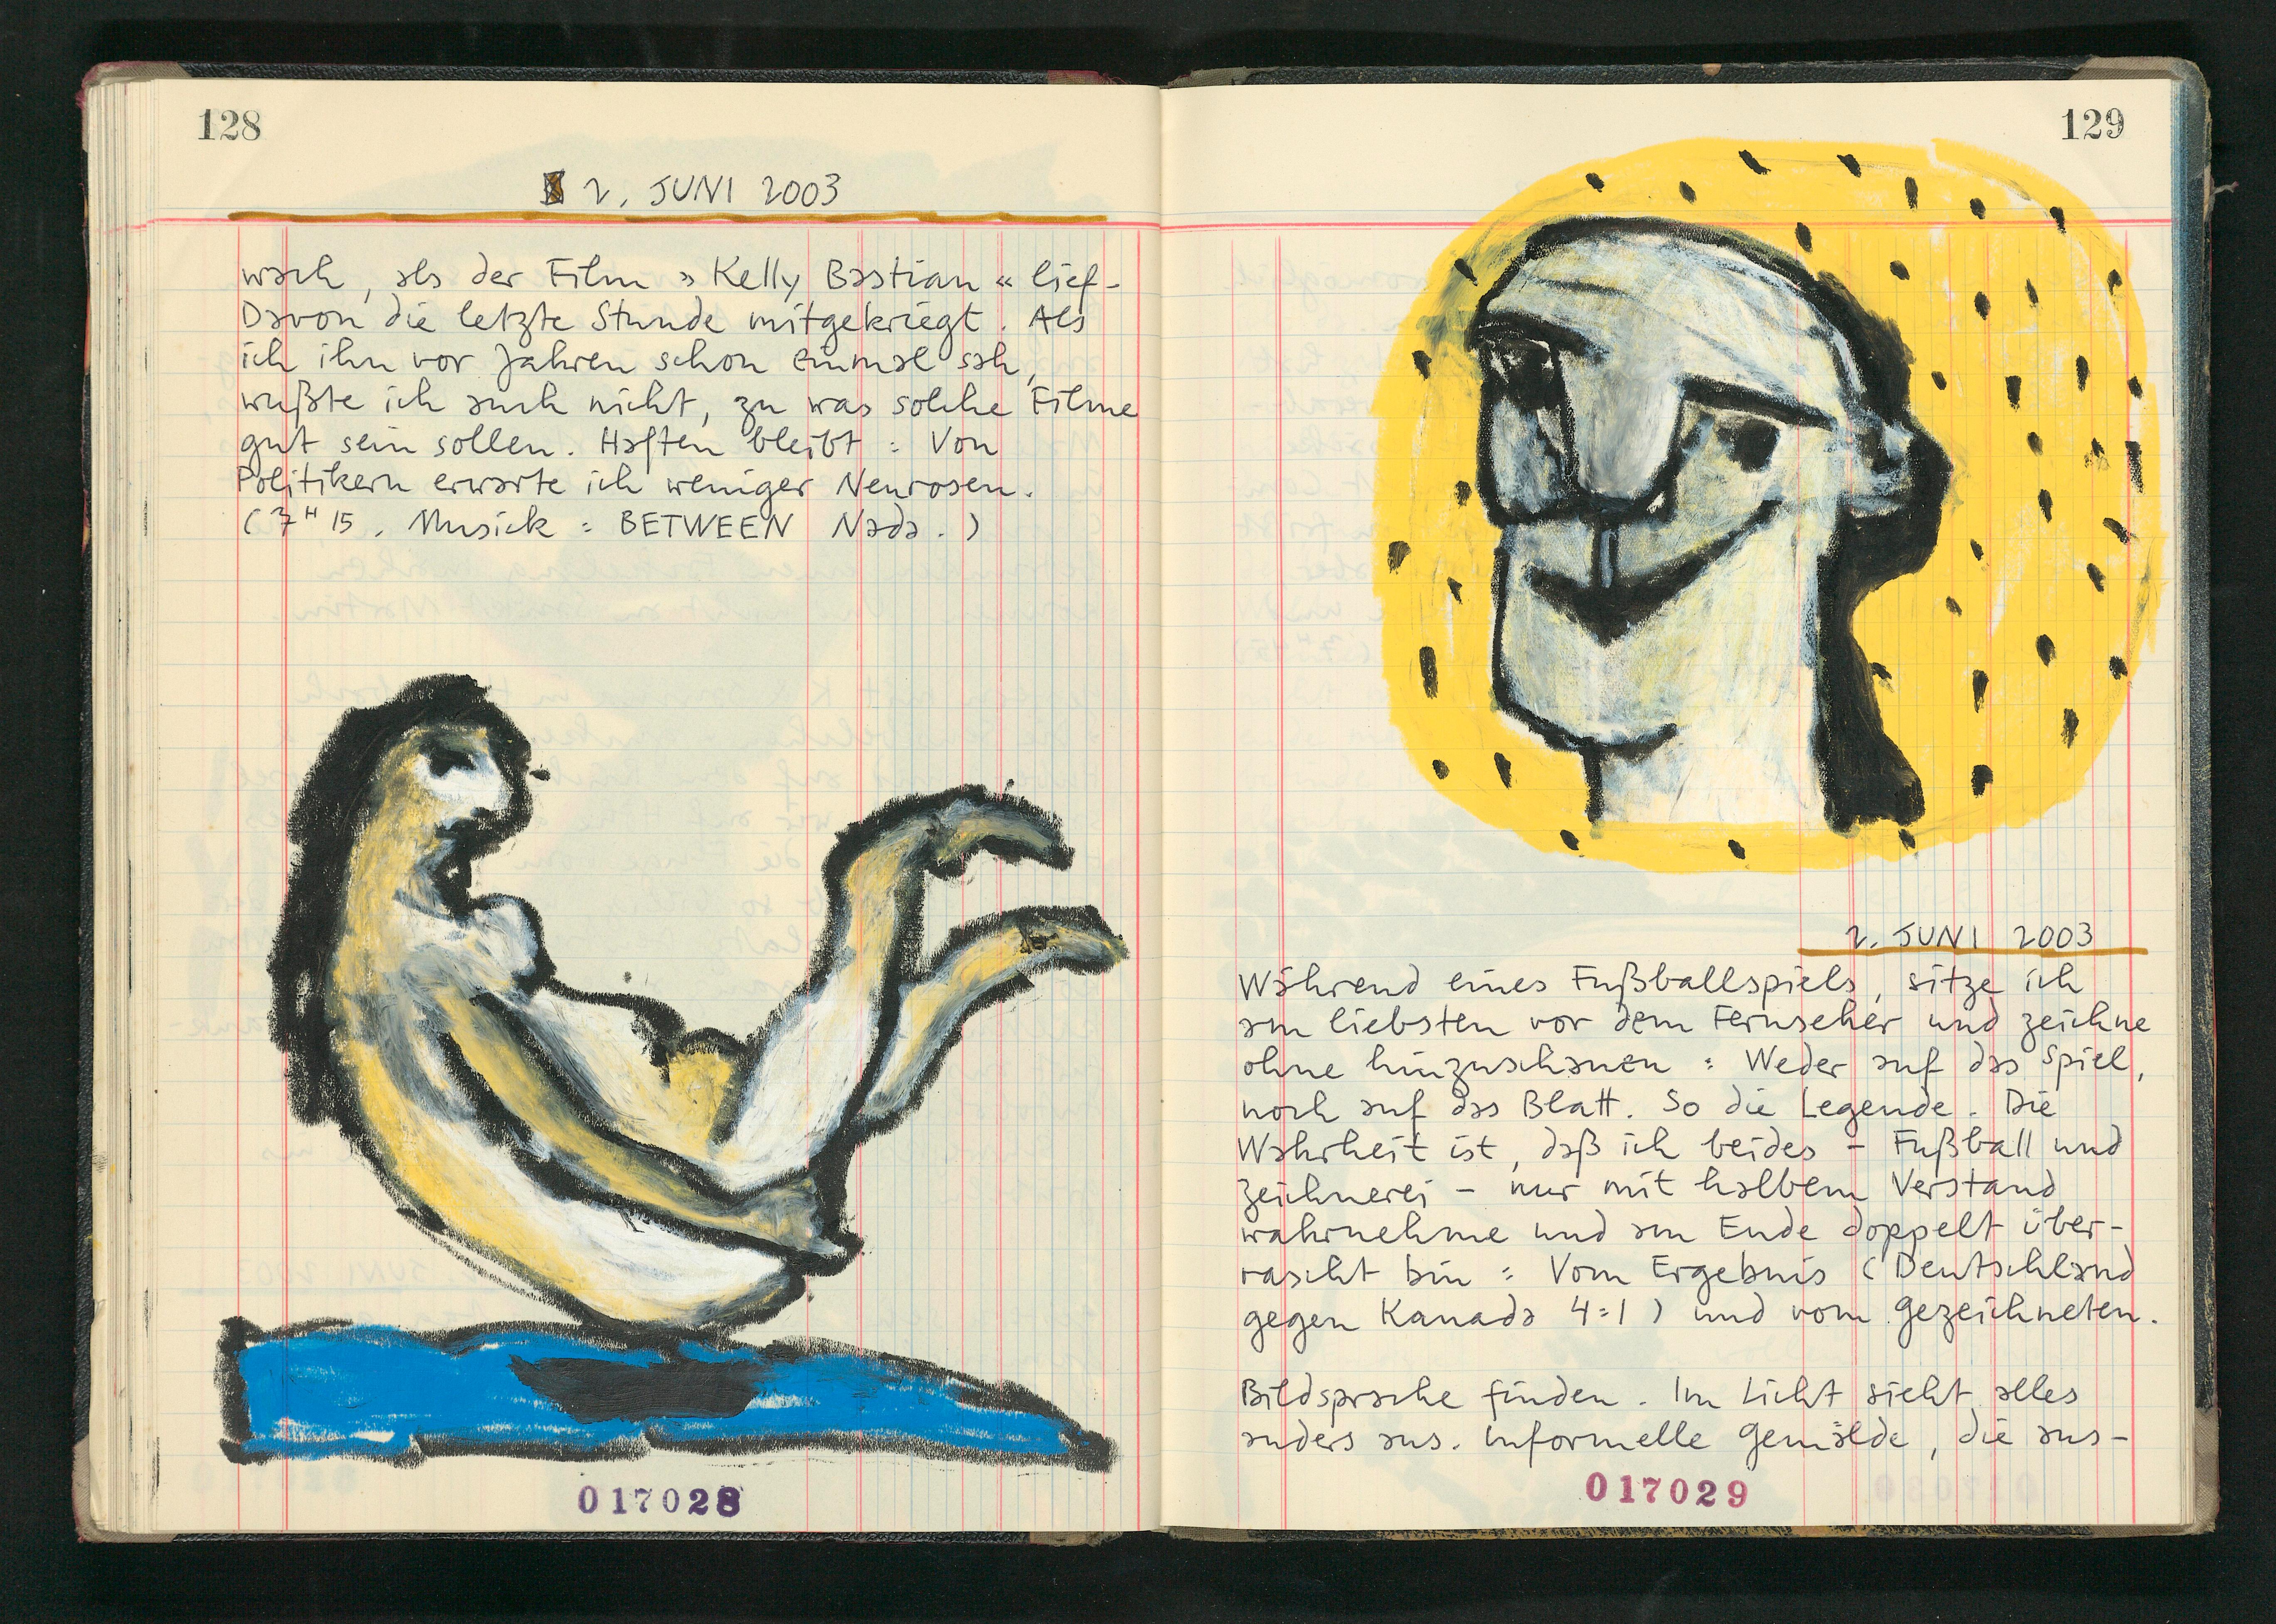 128
2. JUNI 2003
wach, als der Film »Kelly Bastian« lief.
Davon die letzte Stunde mitgekriegt. Als
ich ihn vor Jahren schon einmal sah,
wußte ich auch nicht, zu was solche Filme
gut sein sollen. Haften bleibt: Von
Politikern erwarte ich weniger Neurosen.
(7H15. Musick: BETWEEN Nada.)
017028
129
2. JUNI 2003
Während eines Fußballspiels, sitze ich
am liebsten vor dem Fernseher und zeichne
ohne hinzuschauen: Weder auf das Spiel,
noch auf das Blatt. So die Legende. Die
Wahrheit ist, daß ich beides – Fußball und
Zeichnerei – nur mit halbem Verstand
wahrnehme und am Ende doppelt über-
rascht bin: Vom Ergebnis (Deutschland
gegen Kanada 4:1) und vom Gezeichneten.
Bildsprache finden. Im Licht sieht alles
anders aus. Informelle Gemälde, die aus-
017029